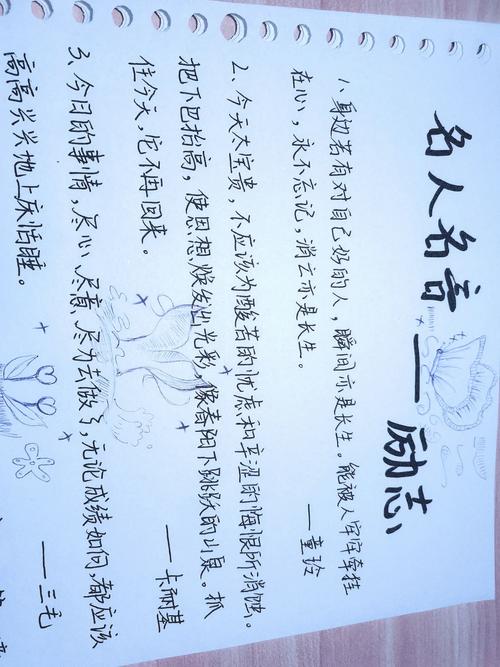 名人名言——励志
1、身边若有对自己好的人，瞬间亦是长生。能被人牢牢牵挂
在心，永不忘记，消亡亦是长生。
——童玲
2、今天太宝贵，不应该为酸苦的忧虑和辛涩的悔恨所消蚀。
把下巴抬高，使思想焕发出光彩，像春阳下跳跃的山泉。抓
住今天，它不再回来。 ——卡耐基
3、今日的事情，尽心、尽意、尽力去做了，无论成绩如何，都应该
高高兴兴地上床恬睡。 ——三毛